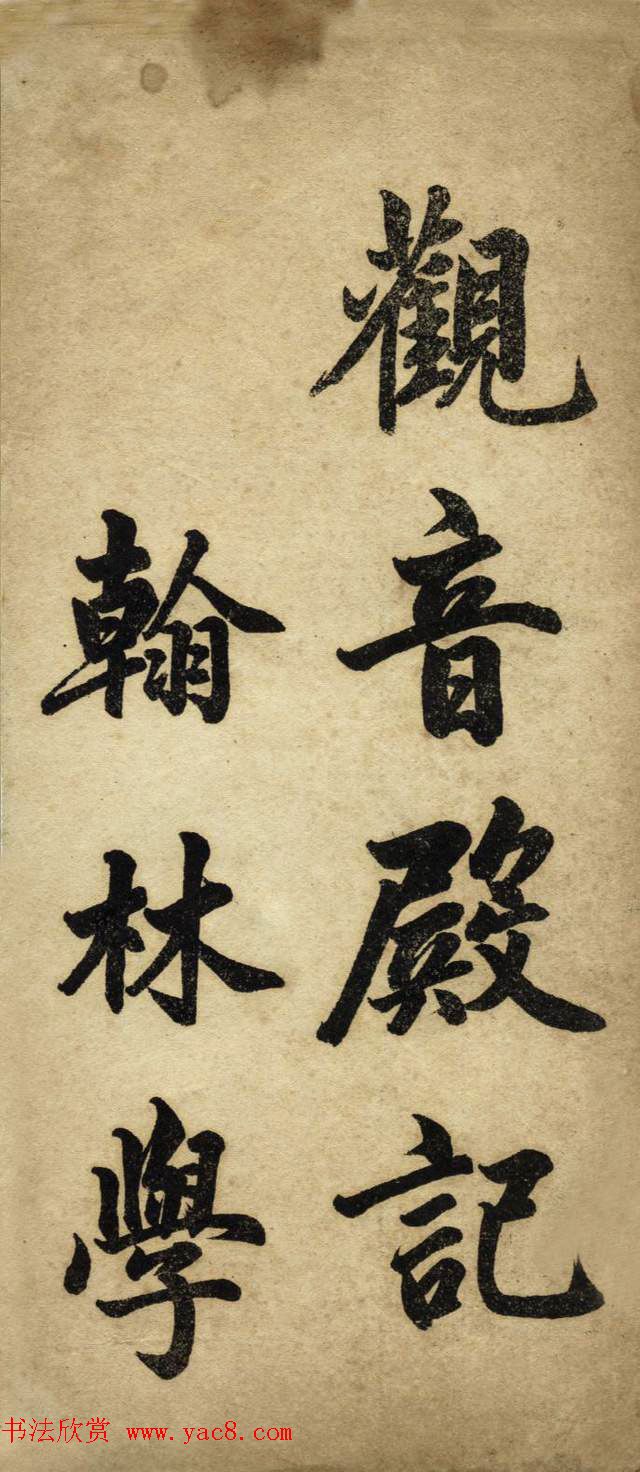 觀音殿記
翰林學
书法欣赏 www.yac8.com